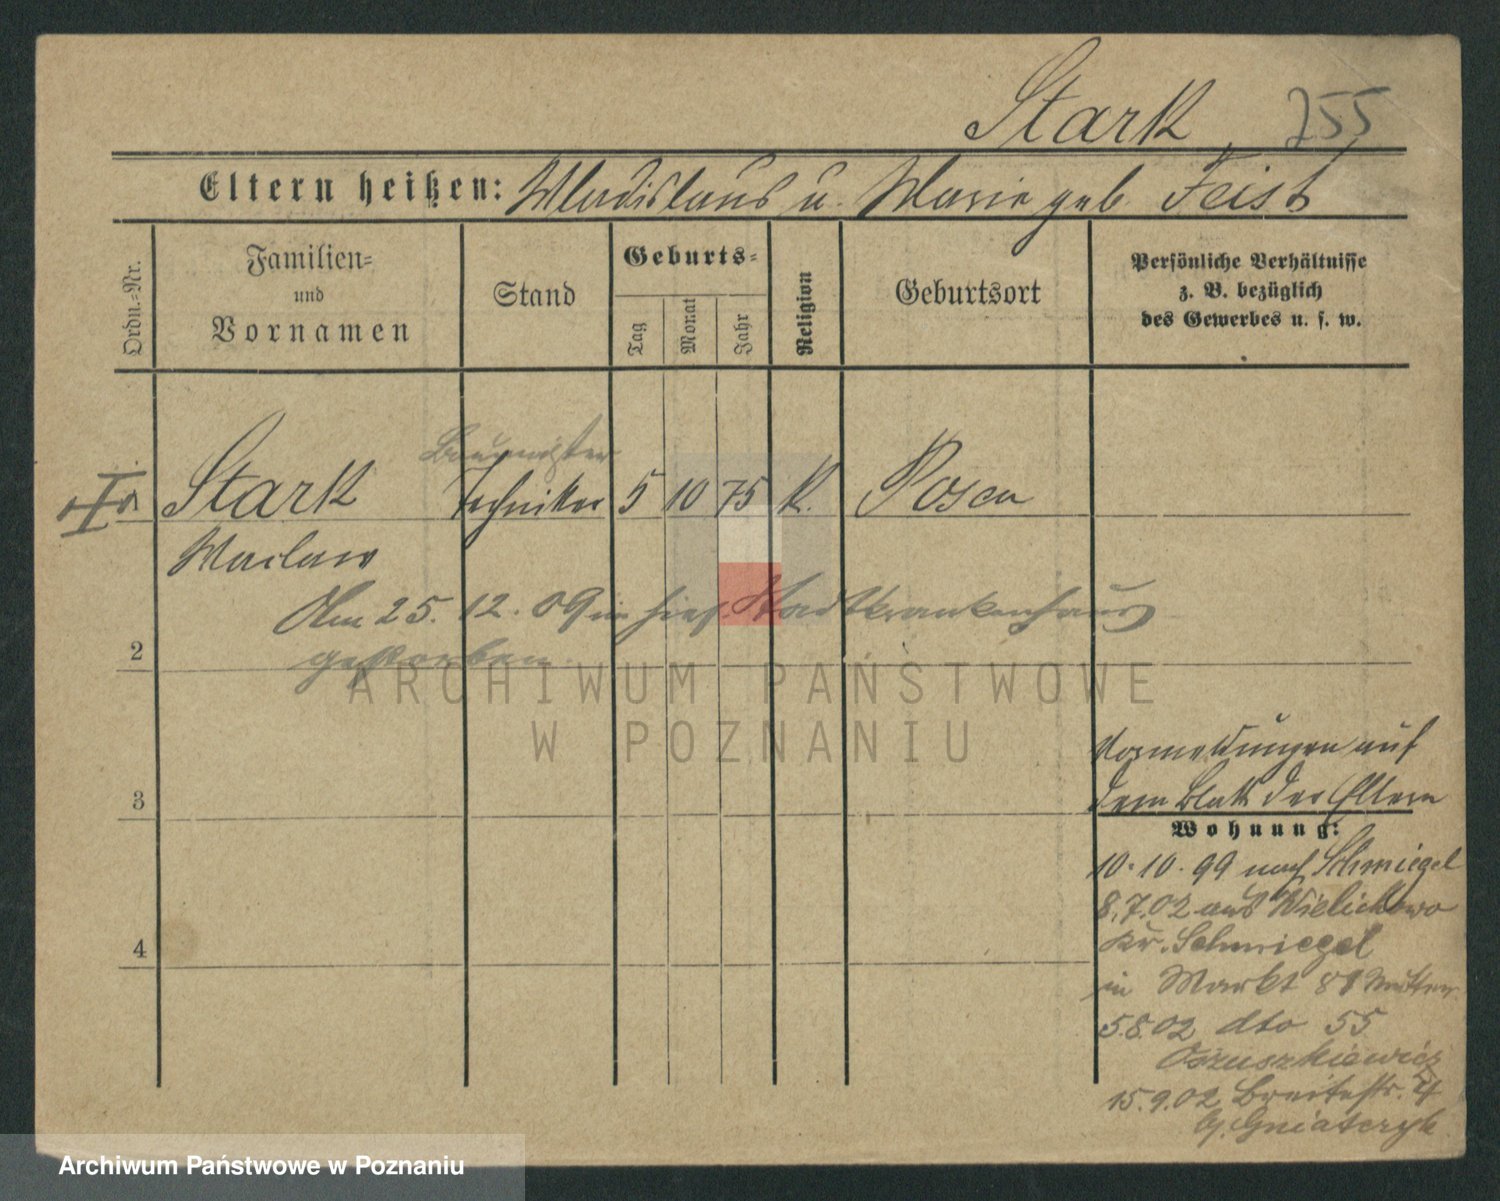 Stark 255
Eltern heißen: Wladislaus u. Marie geb. Feist
Ordn.-Nr.
Familien-
und
Vornamen
Stand
Geburts-
Tag
Monat
Jahr
Religion
Geburtsort
Persönliche Verhältnisse
z. B. bezüglich
des Gewerbes u. s. w.
Baumeister
Stark Techniker 5 10 75 K. Posen
Waclaw
Am 25. 12. 09 im hies. Stadtkrankenhaus
2 gestorben.
ARCHIWUM PAŃSTWOWE
W POZNANIU
Vormeldungen auf
3 dem Blatt der Eltern
Wohnung:
10.10.99 nach Schmiegel
8.7.02 aus Wielichowo
4 Kr. Schmiegel
in Markt 81 Mutter
5.8.02 dto 55
15.9.02 Breitestr.
b/. Gniatczyk
Archiwum Państwowe w Poznaniu